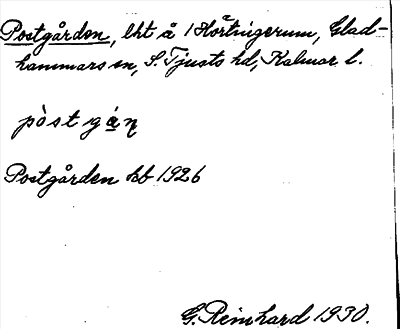 Postgården, lht å 1 Hörtingerum, Glad-
hammars sn, S. Tjusts hd, Kalmar l.
pòstgán
Postgården kb 1926
G. Reinhard 1930.